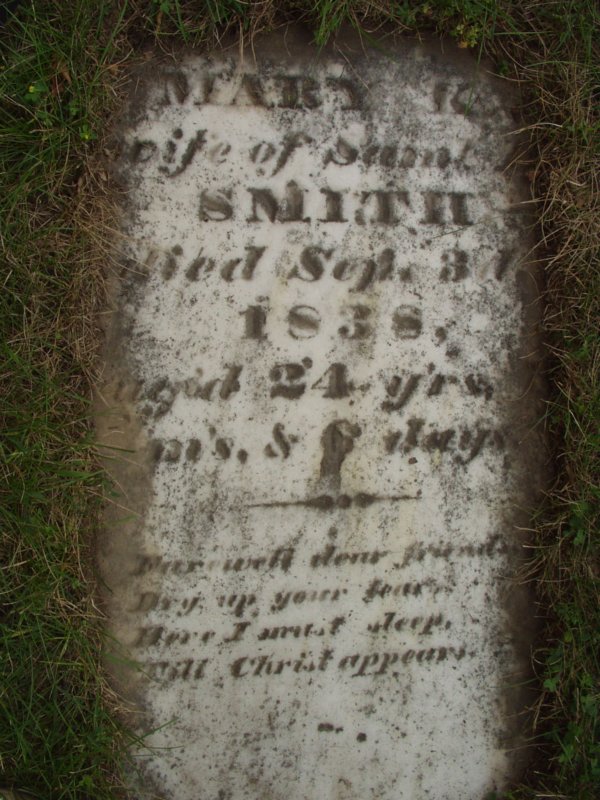 MARY
wife of Saml
SMITH
Died Sep. 3d
1838,
aged 24 yrs,
ms, & days
Farewell dear friends
Dry up your tears
Here I must sleep,
Till Christ appears.